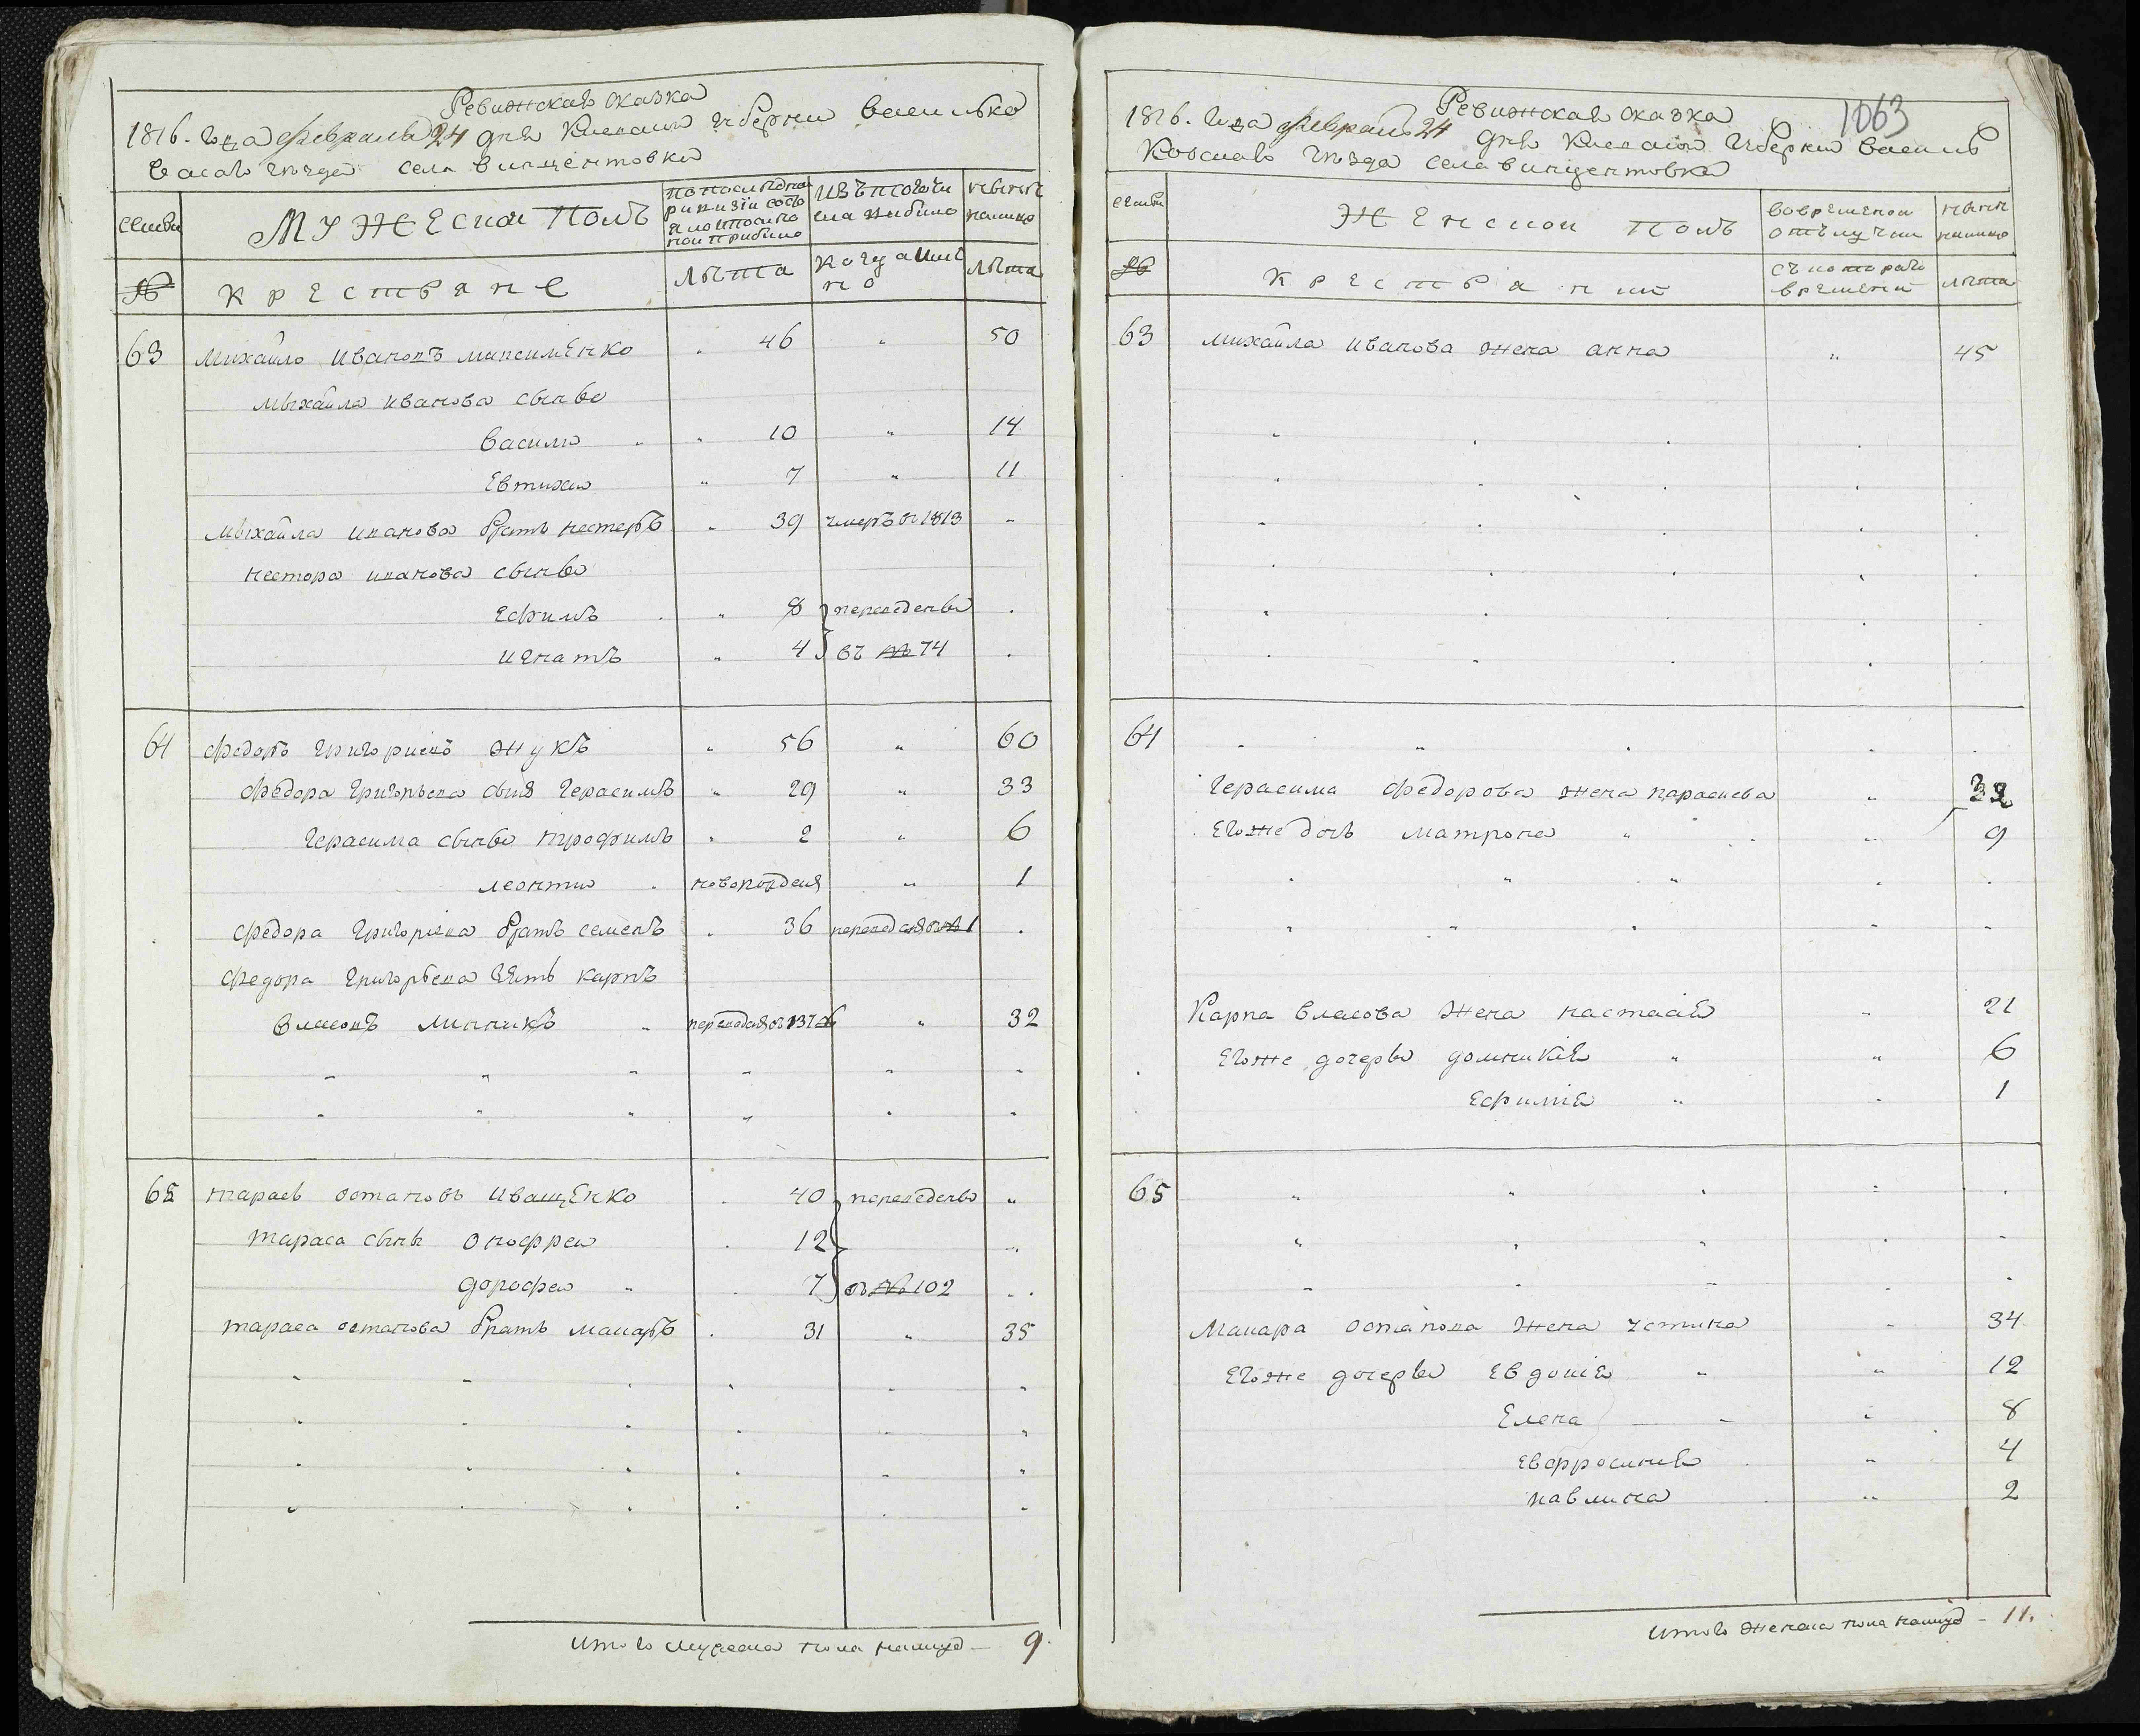 Ревижская сказка
1816. года февраля 24 дня Киевской губерни василько
васаго уезда села винцентовки
семьи
МУЖЕСКОЙ ПОЛЪ
по последней ревизіи состояло и после пои прибыло
изъ того числа выбыло
ныне налицо
№
крестьяне
лета
когда имянно
лета
63 михайло ивановъ максименко " 46 " 50
михайла иванова сынво
василю " 10 " 14
Евтихи " 7 " 11
михайла иванова братъ нестеръ " 39 умеръ въ 1813 "
нестора иванова сынво
Ефимъ " 8 переведены
игнатъ " 4 въ № 74
64 федоръ григориевъ жукъ " 56 " 60
федора григорьева сынъ герасимъ " 29 " 33
герасима сынво трофимъ " 2 " 6
леонти новорожденъ " 1
федора григориева братъ семенъ " 36 переведенъ въ № 1
федора григорьева зять карпъ
власовъ линникъ " переведенъ " 32
65 тарасъ остаповъ иващенко 40 переведены "
тараса сынъ онофреи 12
дорофеи " 7 въ № 102
тараса остапова братъ макаръ 31 " 35
итого мужеска пола налицо — 9.
1063
Ревижская сказка
1816. года февраля 24 дня Киевской губерни василь
ковскаго уезда села винцентовки
семьи
ЖЕНСКОЙ ПОЛЪ
во временной отлучки
ныне налицо
№
крестьянки
съ котораго времени
лета
63 михайла иванова жена анна " 45
64
герасима федорова жена параскева " 32
Егоже дочь матрона " " 9
Карпа власова жена настасія " 21
Егоже дочерьи домникія " " 6
Ефимія " " 1
65
Макара остапова жена устина " 34
Егоже дочерьи Евдокія " " 12
Елена — " 8
Евфросинія " 4
павлина " 2
итого женска пола налицо — 11.